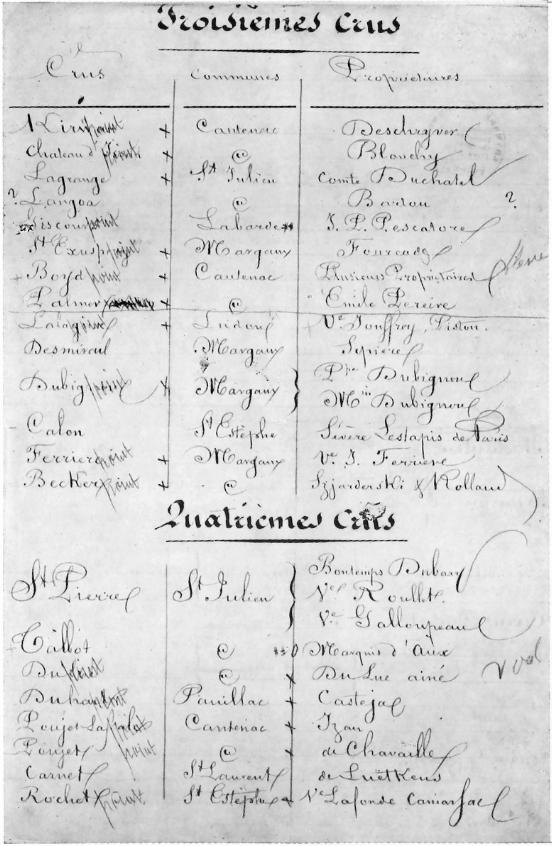 Troisièmes Crus
Crus Communes Propriétaires
Kirw point + Cantenac Deschryver
Chateau d' point + @ Blanchy
Lagrange + St Julien Comte Duchatel
? Langoa Bartou ?
Giscours point Labarde J. P. Pescatore
St Exup point + Margaux Fourcade
+ Boyd point + Cantenac Plusieurs Propriétaires
Palmer + @ Emile Pereire
Lalagune + Ludon Ve Jouffroy Piston
Desmirail Margaux Sipière
Dubig point x Margaux } Pre Dubignon
Min Dubignon
Calon St Estèphe Sévère Lestapis de Paris
Ferrier point + Margaux Ve J. Ferrière
Becker point + @ Szjarderski & Rolland
Quatrièmes Crus
Bontemps Dubarry
St Pierre St Julien } Ve Roullet
Ve Galloupeau
Talbot @ Marquis d'Aux
Du point @ x Du Luc ainé
Duhar point Pauillac + Casteja
Poujet Lassalle Cantenac + Izan
Poujet point @ + de Chavaille
Carnet St Laurent de Luetkens
Rochet point St Estèphe + Ve Lafonde Camarsac